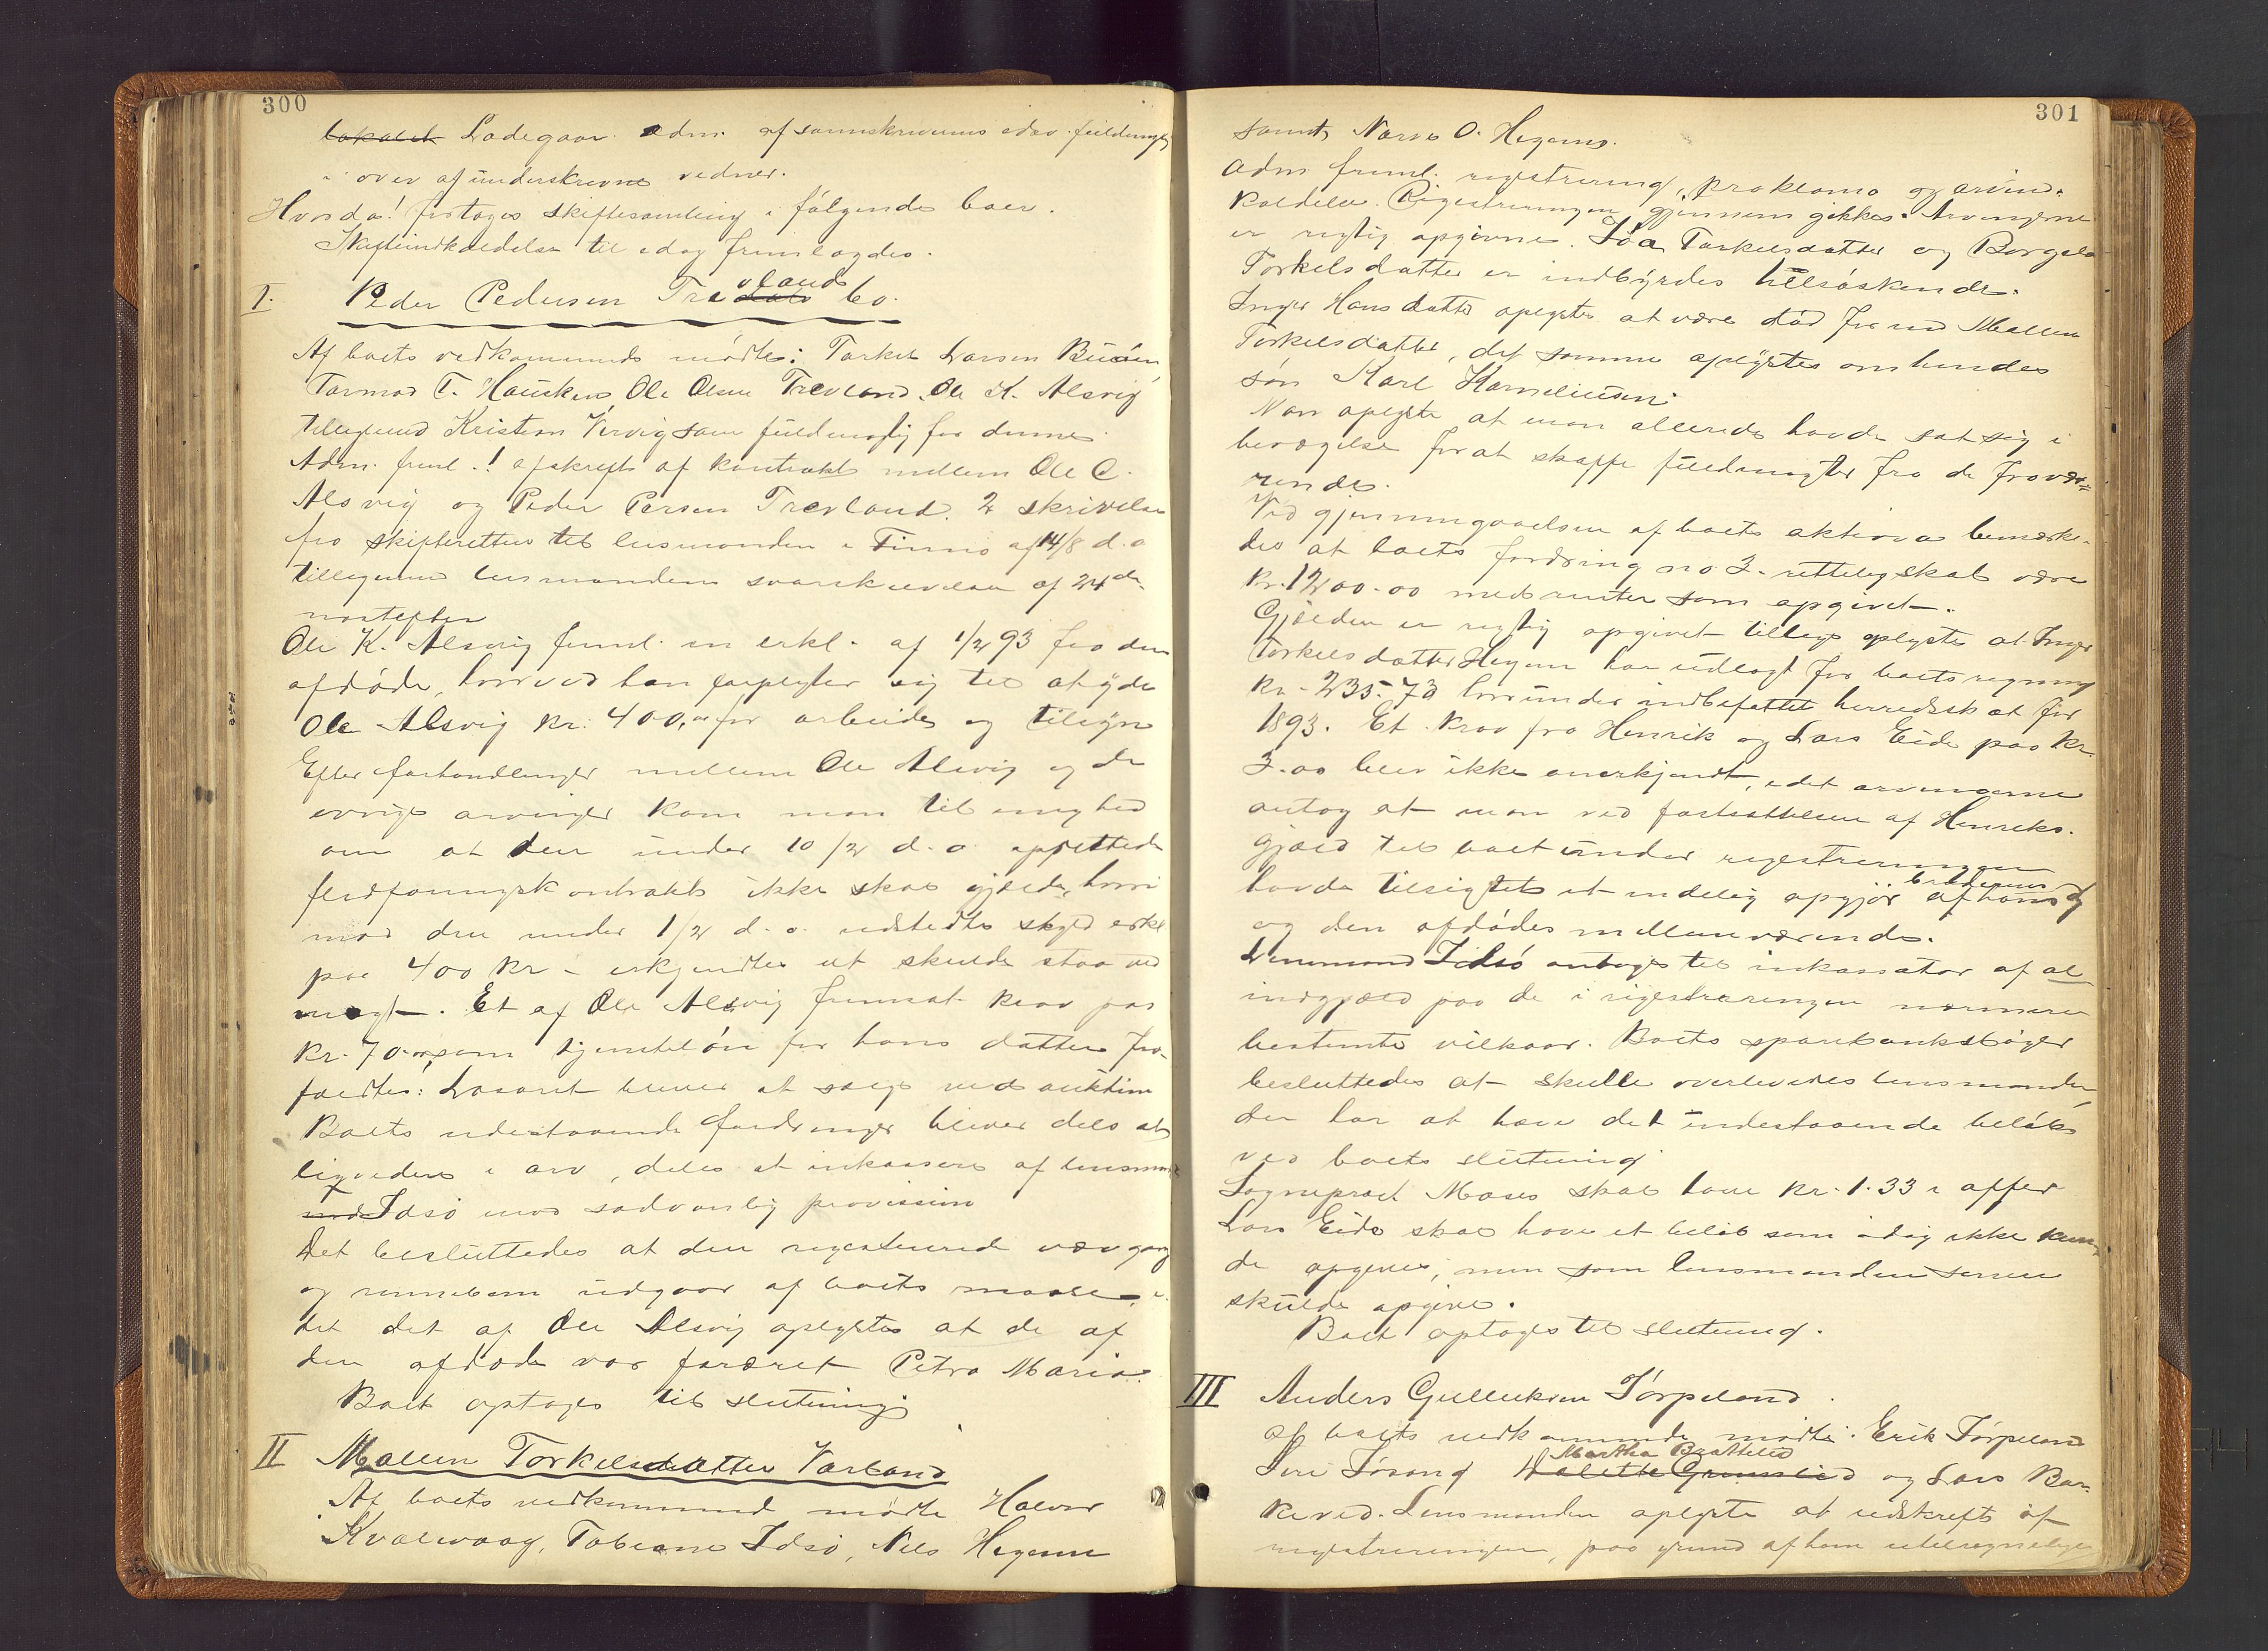 300
lokalet Ladegaar. Adm. af sorenskriverens edsv. fuldmægtig
i over af underskrevne vidner.
Hvorda! foretoges skiftesamling i følgende boer.
Skifteindkaldelse til idag fremlagdes.
I. Peder Pedersen Trevlands bo.
Af boets vedkommende mødte: Torkel Larsen Buøen
Tormod T. Hausken, Ole Olsen Trevland, Ole K. Alsvig
tilligemed Kristen Vervig som fuldmægtig for denne
Adm. freml.! afskrift af kontrakt mellem Ole K.
Alsvig og Peder Persen Trevland. 2 skrivelser
fra skifteretten til lensmanden i Finnø af 14/8 d.a
tilligemed lensmandens svarskrivelser af 24de
næstefter
Ole K. Alsvig freml. en erkl. af 1/2 93 fra den
afdøde, hvorved han forpligter sig til at yde
Ole Alsvig kr. 400,00 for arbeide og tilsyn
Efter forhandlinger mellem Ole Alsvig og de
øvrige arvinger kom man til enighed
om at den under 10/2 d.a. oprettede
fledføringskontrakt ikke skal gjælde, hvori
mod den under 1/2 d.a. udstedte skyld erkl
paa 400 kr - erkjendtes at skulde staa ved
magt. Et af Ole Alsvig fremsat krav paa
kr. 70.00 som tjenesteløn for hans datter fra-
faldtes: Løsøret bliver at sælge ved auktion
Boets udestaaende fordringer bliver dels at
ligvidere i arv, dels at inkassere af lensmand
Idsø mod sædvanlig provission
Det besluttedes at den registrerede vævgang
og rennebom udgaar af boets masse, i
det det af Ole Alsvig oplystes at de af
den afdøde var foræret Petra Maria.
Boet optages til slutning
II Malen Torkelsdatter Vårland
Af boets vedkommende mødte Halvor
Kvalevaag, Tobiane Idsø, Nils Hegerne
301
samt Narve O. Hegerne.
Adm freml. registrering, proklama og arvind-
kaldelse. Registreringen gjennemgikkes. Arvingerne
er rigtig opgivne. Siva Torkelsdatter og Borgele
Torkelsdatter er indbyrdes helsøskende.
Inger Hansdatter oplystes at være død før end Mallen
Torkelsdatter, det samme oplystes om hendes
søn Karl Korneliussen.
Man oplyste at man allerede havde sat sig i
bevægelse for at skaffe fuldmagter fra de fravæ-
rende.
Ved gjennemgaaelsen af boets aktiva bemærke-
des at boets fordring no 3. rettelig skal være
kr. 1200.00 med renter som opgivet.
Gjælden er rigtig opgivet tillige oplystes at Inger
Torkelsdatter Hegerne har udlagt for boets regning
kr. 235.73 hvorunder indbefattet herredsskat for
1893. Et krav fra Henrik og Lars Eide paa kr.
3.00 blev ikke anerkjendt, idet arvingerne
antog at man ved fastsættelsen af Henriks
gjæld til boet under registreringen
havde tilsigtet et endelig opgjør af hans brødrenes
og den afdødes mellemværende.
Lensmand Idsø antages til inkassator af al
indgjæld paa de i registreringen nærmere
bestemte vilkaar. Boets sparebanksbøger
besluttedes at skulle overleveres lensmanden
der har at hæve det indestaaende beløb
ved boets slutning
Sogneprest Moses skal have kr. 1.33 i offer
Lars Eide skal have et beløb som idag ikke kun-
de opgives, men som lensmanden senere
skulde opgive.
Boet optages til slutning.
III Anders Gulleiksen Tørpeland.
Af boets vedkommende mødte. Erik Tørpeland
Siri Sørang Martha Brattelid og Lars Bar-
keved. Lensmanden oplyste at udskrift af
registreringen, paa grund af ham utilregnelige